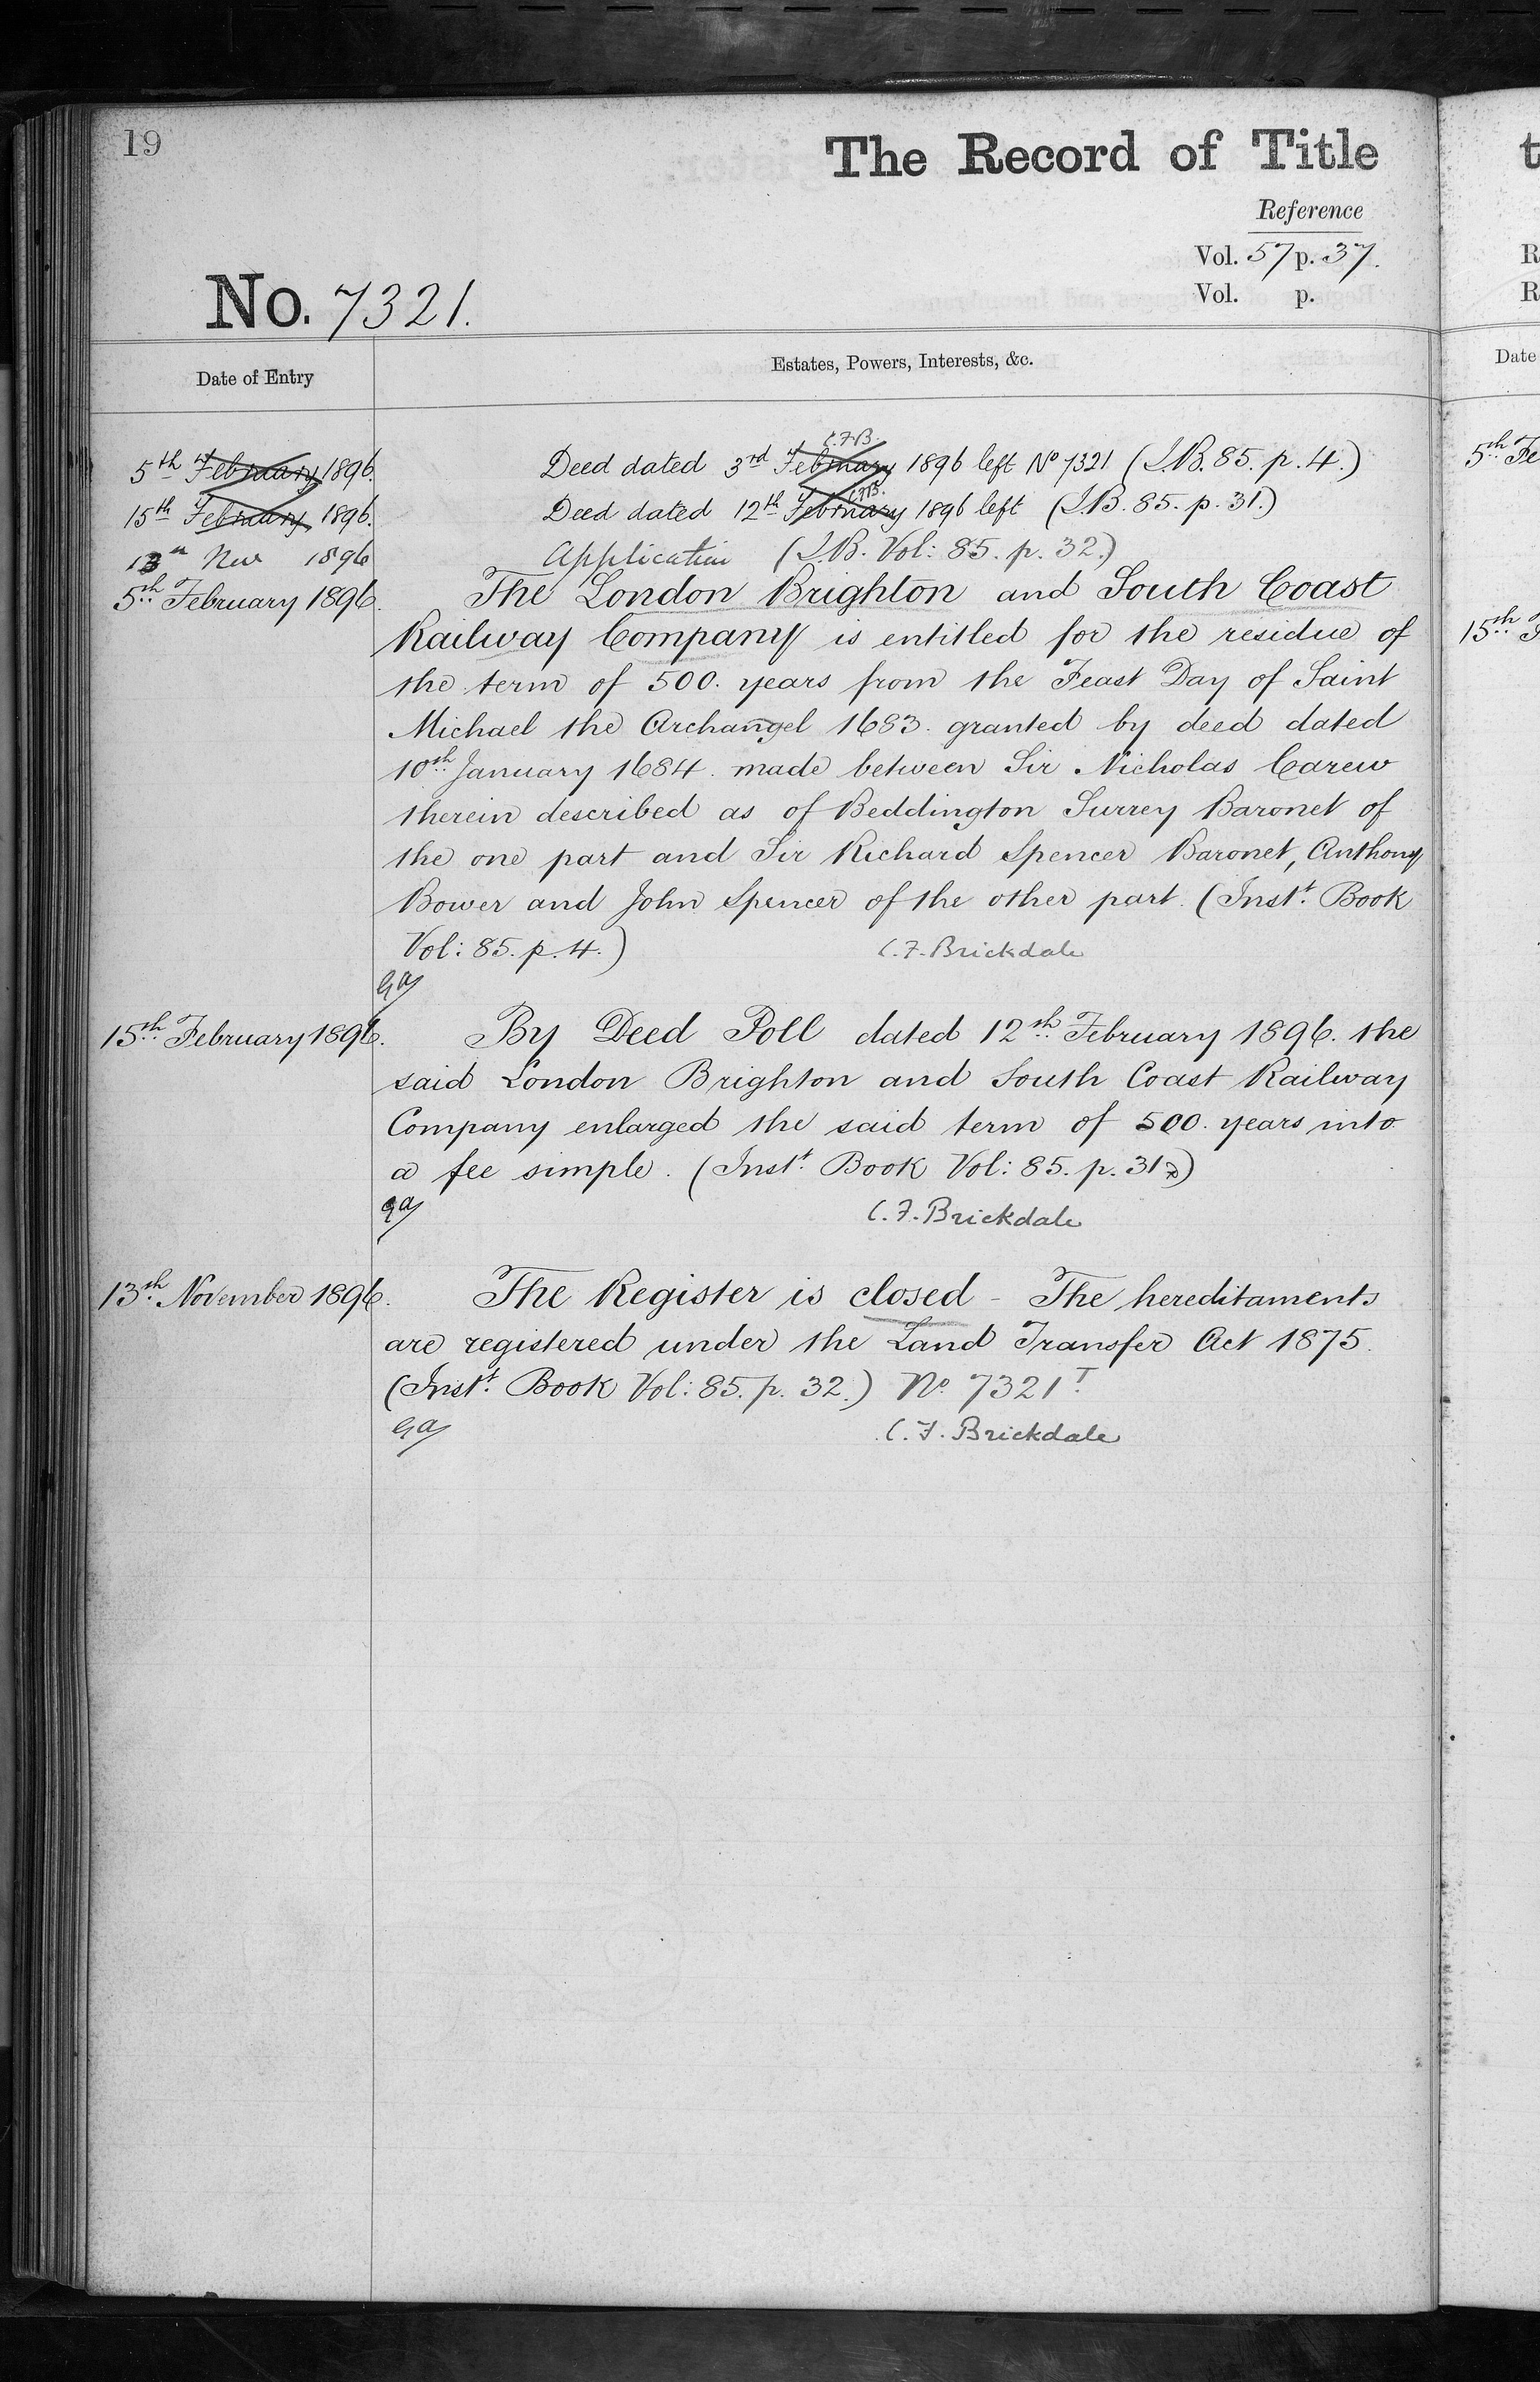 19
The Record of Title
Reference
Vol. 57 p. 37.
Vol. p.
No. 7321.
Date of Entry
Estates, Powers, Interests, &c.
C.F.B.
5th February 1896. Deed dated 3rd February 1896 left No 7321 (I.B. 85. p. 4.)
C.F.B.
15th February 1896. Deed dated 12th February 1896 left (I.B. 85. p. 31.)
13th Nov 1896 Application (I.B. Vol: 85. p. 32.)
5th February 1896. The London Brighton and South Coast
Railway Company is entitled for the residue of
the term of 500. years from the Feast Day of Saint
Michael the Archangel 1683. granted by deed dated
10th January 1684. made between Sir Nicholas Carew
therein described as of Beddington Surrey Baronet of
the one part and Sir Richard Spencer Baronet, Anthony
Bower and John Spencer of the other part. (Instt. Book
Vol: 85. p. 4.) C.F. Brickdale
15th February 1896. By Deed Poll dated 12th February 1896. the
said London Brighton and South Coast Railway
Company enlarged the said term of 500. years into
a fee simple. (Instt. Book Vol: 85. p. 31.)
C.F. Brickdale
13th November 1896. The Register is closed - The hereditaments
are registered under the Land Transfer Act 1875.
(Instt. Book Vol: 85. p. 32.) No. 7321T.
C.F. Brickdale
t
R
R
Date
5th Fe
15th F